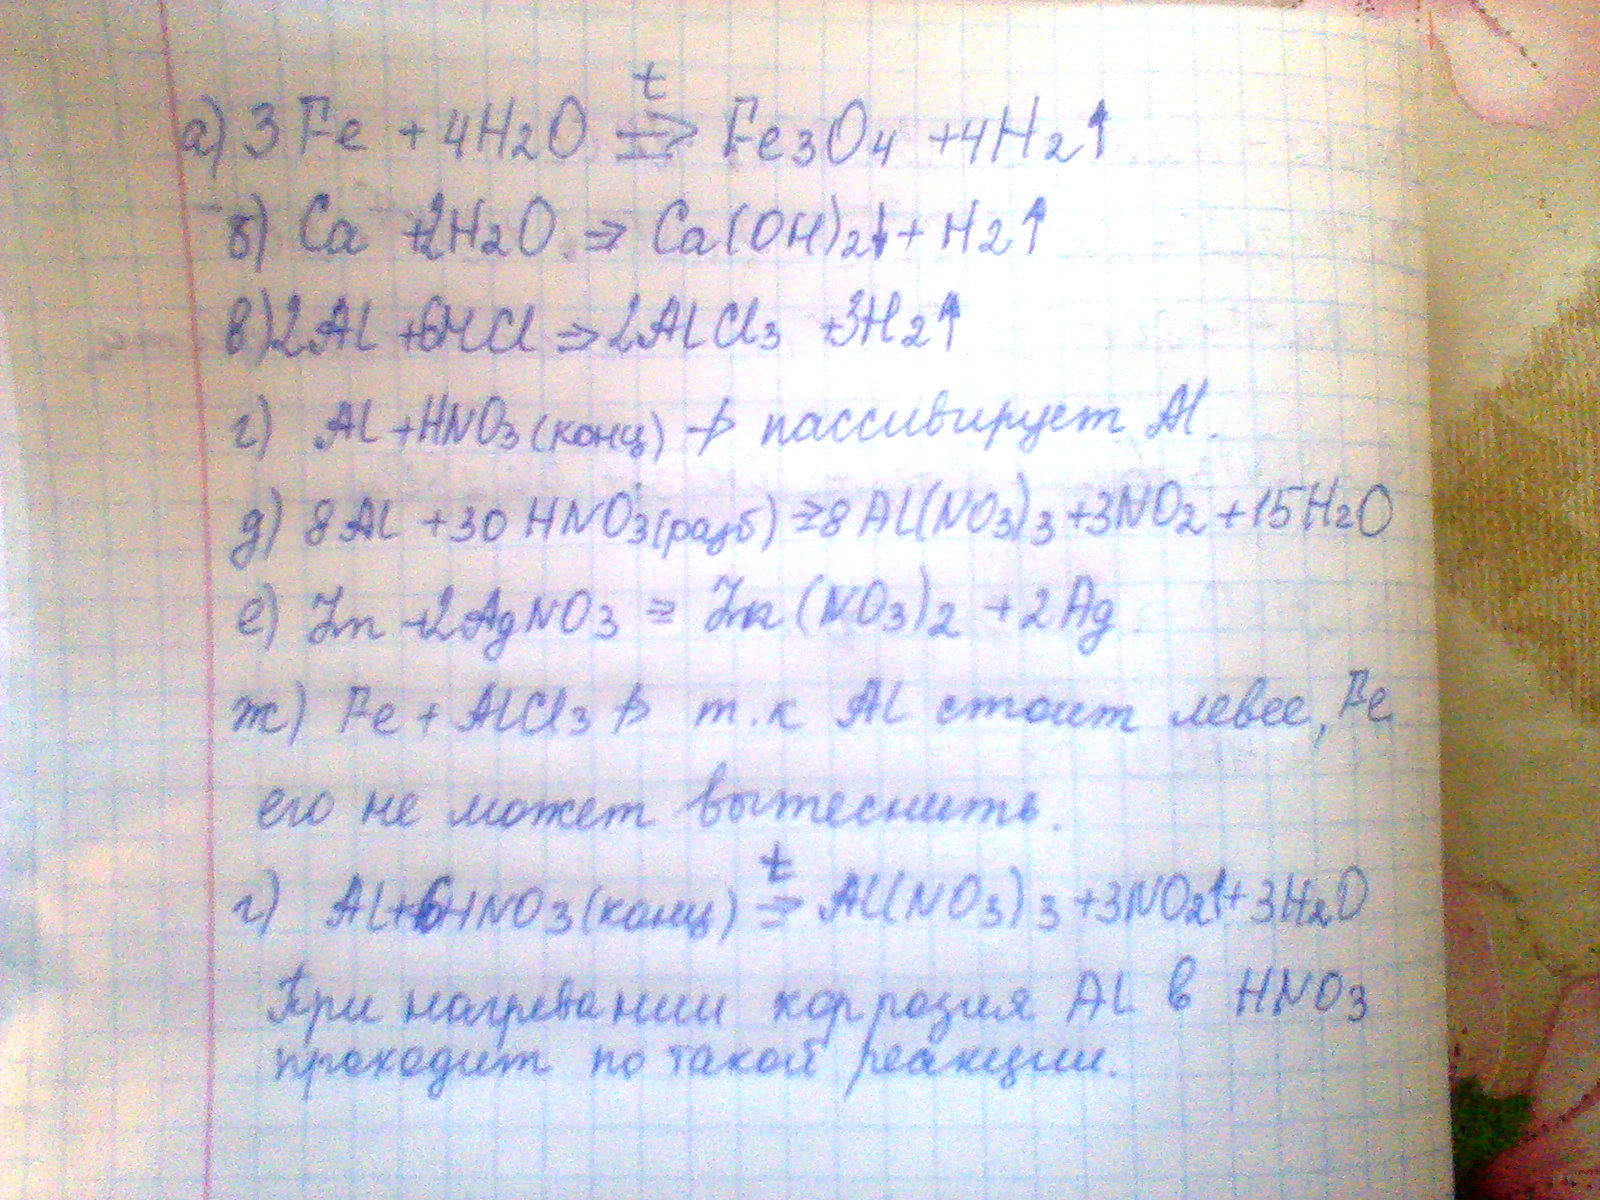 а) 3Fe + 4H2O t⇒ Fe3O4 + 4H2↑
б) Ca + 2H2O ⇒ Ca(OH)2↓ + H2↑
в) 2Al + 6HCl ⇒ 2AlCl3 + 3H2↑
г) Al + HNO3 (конц) ↛ пассивирует Al.
д) 8Al + 30HNO3 (разб) ⇒ 8Al(NO3)3 + 3NO2 + 15H2O
е) Zn + 2AgNO3 = Zn(NO3)2 + 2Ag
ж) Fe + AlCl3 ↛ т.к Al стоит левее, Fe
его не может вытеснить.
г) Al + 6HNO3 (конц) t⇒ Al(NO3)3 + 3NO2↑ + 3H2O
При нагревании коррозия Al в HNO3
проходит по такой реакции.